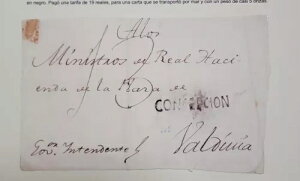 en negro. Pagó una tarifa de 19 reales, para una carta que se transportó por mar y con un peso de casi 5 onzas.
A los
Ministros de Real Haci
enda de la Plaza de
CONCEPCION
Valdivia
Intendente